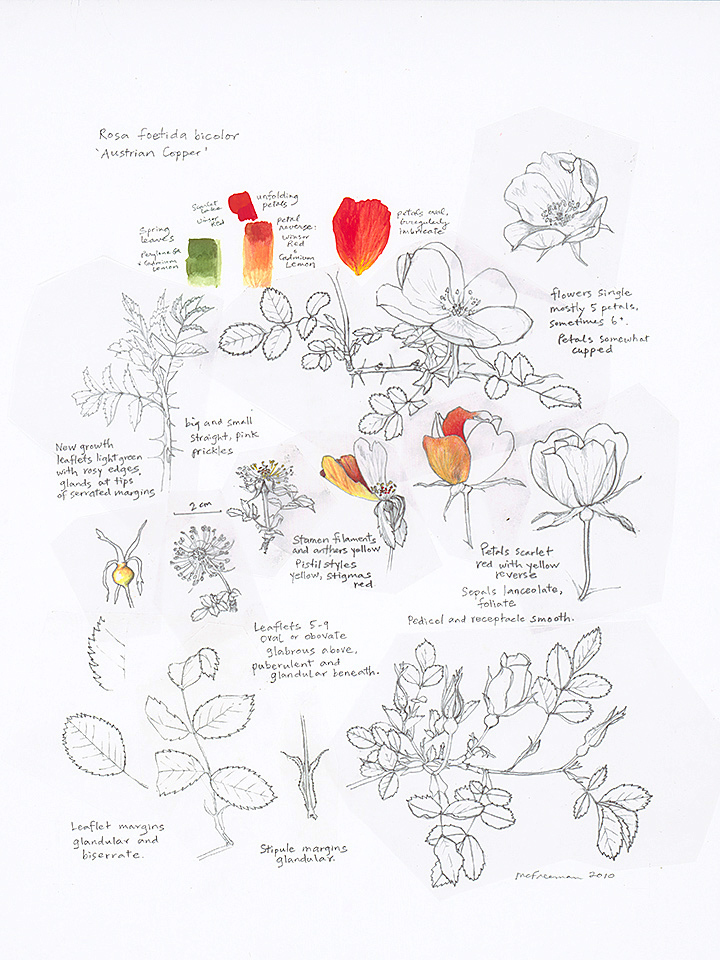 Rosa foetida bicolor
'Austrian Copper'
Scarlet
Lake
Winsor
Red
unfolding
petals
Spring
leaves
Perylene Gr
+ Cadmium
Lemon
Petal
reverse:
Winsor
Red
+
Cadmium
Lemon
petals oval,
irregularly
imbricate
flowers single
mostly 5 petals,
sometimes 6+.
Petals somewhat
cupped
big and small
straight, pink
prickles
New growth
leaflets light green
with rosy edges,
glands at tips
of serrated margins
2 cm
Stamen filaments
and anthers yellow
Pistil styles
yellow, stigmas
red
Petals scarlet
red with yellow
reverse
Sepals lanceolate,
foliate
Pedicel and receptacle smooth.
Leaflets 5-9
Oval or obovate
glabrous above,
puberulent and
glandular beneath.
Leaflet margins
glandular and
biserrate.
Stipule margins
glandular.
McFreeman 2010